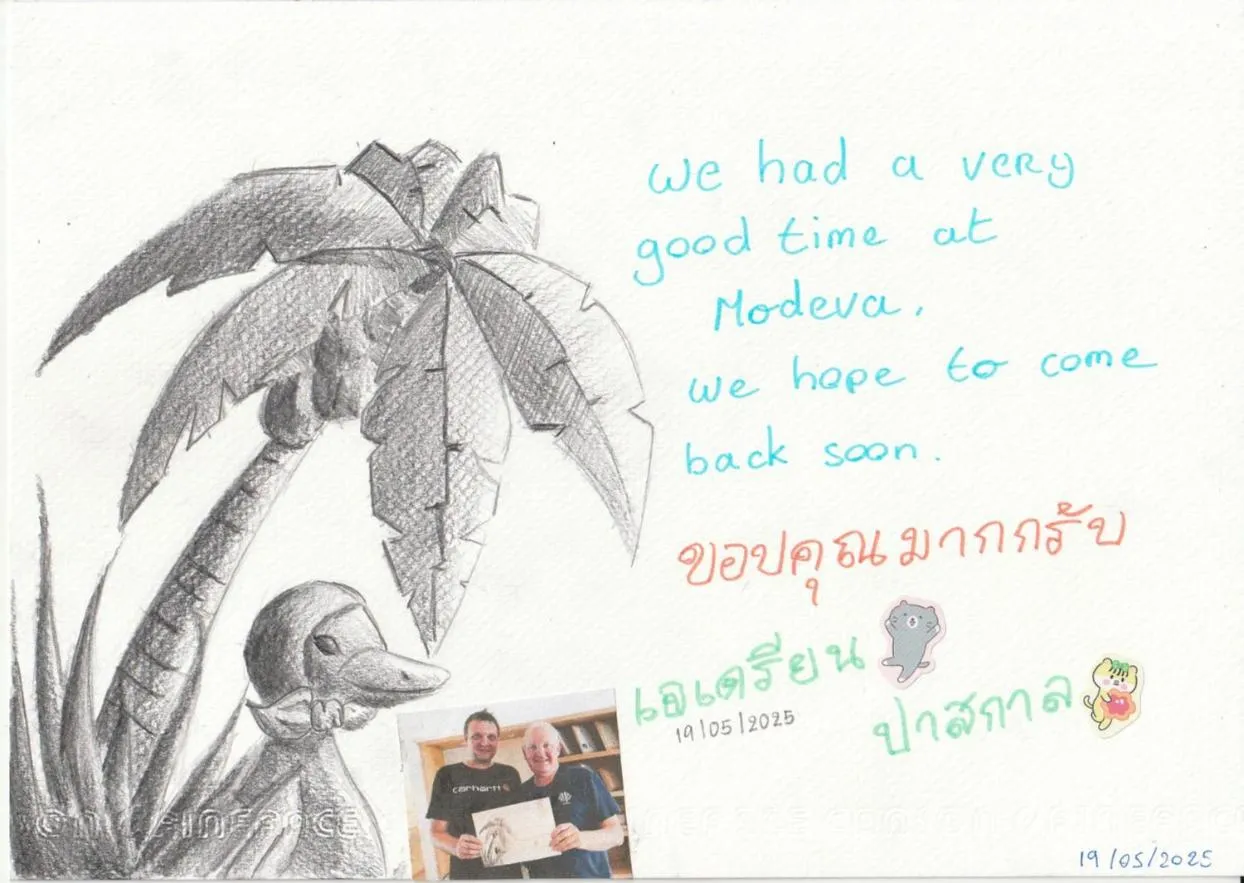 we had a very
good time at
Modeva.
we hope to come
back soon.
ขอปคุณมากกรับ
เอเดรียน
19/05/2025
ปาสกาล
carhartt
19/05/2025